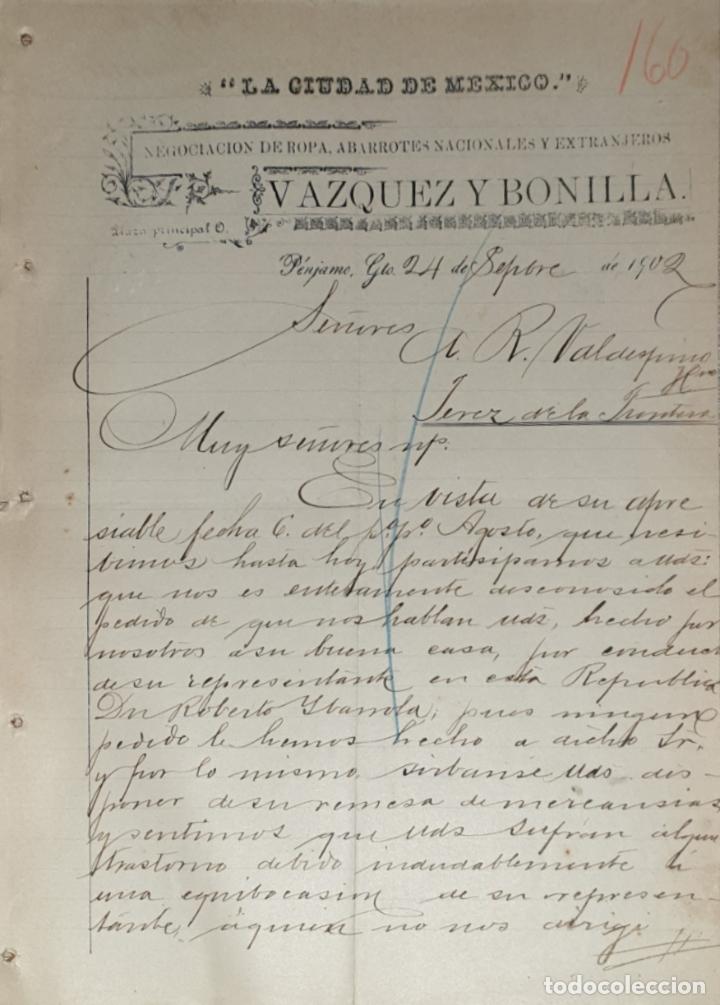 160
"LA CIUDAD DE MEXICO."
NEGOCIACION DE ROPA, ABARROTES NACIONALES Y EXTRANJEROS
VAZQUEZ Y BONILLA.
Plaza principal O.
Pénjamo, Gto. 24 de Sepbre de 1902
Señores
A. R. Valdespino
Hno
Jerez de la Frontera
Muy señores np.
En vista de su apre
siable fecha 6. del p.º p.º Agosto, que resi-
bimos hasta hoy, partisipamos a uds:
que nos es enteramente desconosido el
pedido de que nos hablan uds, hecho por
nosotros a su buena casa, por conduct
de su representante en esta Republica
Dn Roberto Ybarrola, pues ningun
pedido le hemos hecho a dicho Sr.
y por lo mismo sirbanse uds dis-
poner de su remesa de mercansias
y sentimos que uds sufran algun
trastorno debido indudablemente á
una equibocasion de su represen-
tante, á quien no nos dirigi
todocoleccion
todocoleccion.net